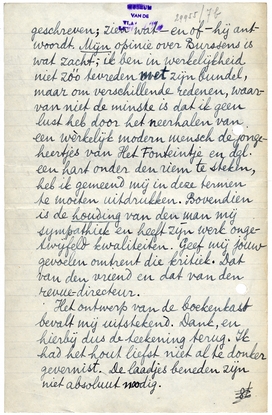 MUSEUM
VAN DE
29955/72
geschreven; zien wat en of hij ant-
woordt. Mijn opinie over Burssens is
wat zacht; ik ben in werkelijkheid
niet zóó tevreden met zijn bundel,
maar om verschillende redenen, waar-
van niet de minste is dat ik geen
lust heb door het neerhalen van
een werkelijk modern mensch de jonge-
heertjes van Het Fonteintje en dgl.
een hart onder den riem te steken,
heb ik gemeend mij in deze termen
te moeten uitdrukken. Bovendien
is de houding van den man mij
sympathiek en heeft zijn werk onge-
twijfeld kwaliteiten. Geef mij jouw
gevoelen omtrent die kritiek. Dat
van den vriend en dat van den
revue-directeur.
Het ontwerp van de boekenkast
bevalt mij uitstekend. Dank, en
hierbij dus de teekening terug. Ik
had het hout liefst niet al te donker
gevernist. De laadjes beneden zijn
niet absoluut nodig.